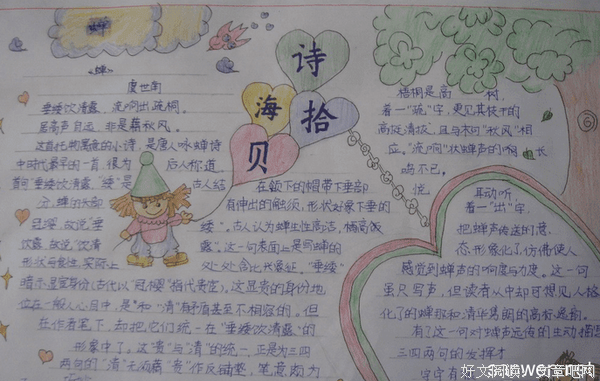 蝉
诗
海
拾
贝
《蝉》
虞世南
垂緌饮清露，流响出疏桐。
居高声自远，非是藉秋风。
这首托物寓意的小诗，是唐人咏蝉诗
中时代最早的一首，很为 后人称道
首句"垂緌饮清露"，"緌"是 古人结
在颔下的帽带下垂部
分，蝉的头部 有伸出的触须，形状好象下垂的
冠缨，故说"垂 緌"。古人认为蝉生性高洁，栖高饮
饮露，故说"饮清 露"。这一句表面上是写蝉的
形状与食性，实际上 处处含比兴象征。"垂緌"
暗示显宦身份(古代以"冠缨"指代贵宦)，这显贵的身份地
位在一般人心目中，是 和"清"有矛盾甚至不相容的。但
在作者笔下，却把它们统一在"垂緌饮清露"的
形象中了。这"贵"与"清"的统一，正是为三四
两句的"清"无须藉"贵"作反铺垫，笔意颇为
梧桐是高 树，
着一"疏"字，更见其枝干的
高挺清拔，且与末句"秋风"相
应。"流响"状蝉声的响 长
鸣不已，
悦 耳动听，
着一"出"字，
把蝉声传送的意
态形象化了，仿佛使人
感觉到蝉声的响度与力度。这一句
虽只写声，但读者从中却可想见人格
化了的蝉那和清华隽朗的高标逸韵。
有了这一句对蝉声远传的生动描写
三四两句的发挥才
字字有
好文阅读，文章吧网
sanwen.net